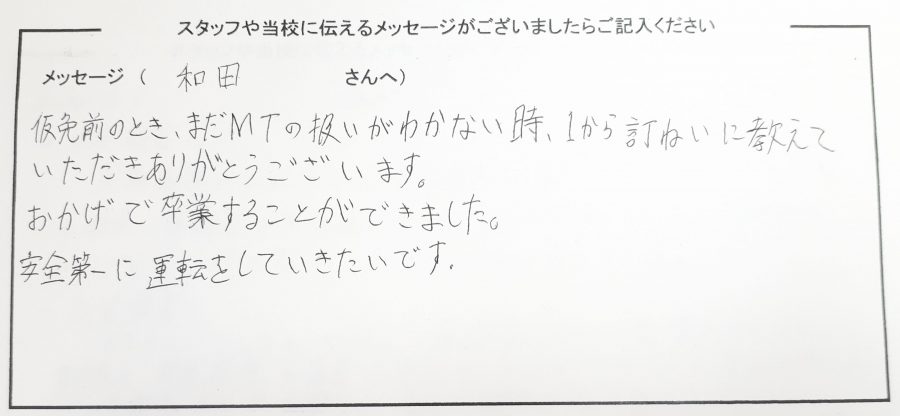 スタッフや当校に伝えるメッセージがございましたらご記入ください
メッセージ（ 和田 さんへ）
仮免前のとき、まだMTの扱いがわかない時、1から訂ねいに教えて
いただきありがとうございます。
おかげで卒業することができました。
安全第一に運転をしていきたいです.